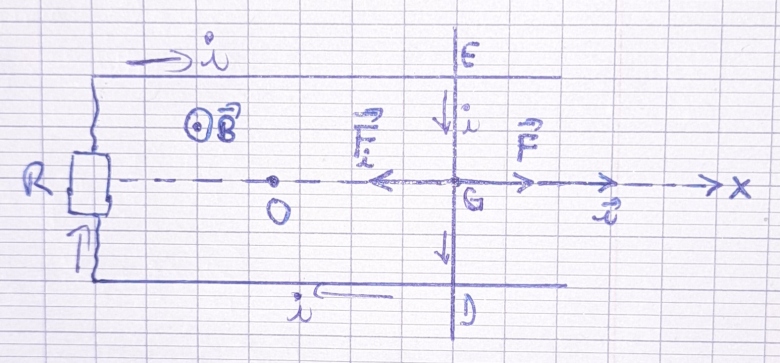 i
E
B⃗
i
F⃗ᵢ
F⃗
R
O
G
i⃗
x
i
D